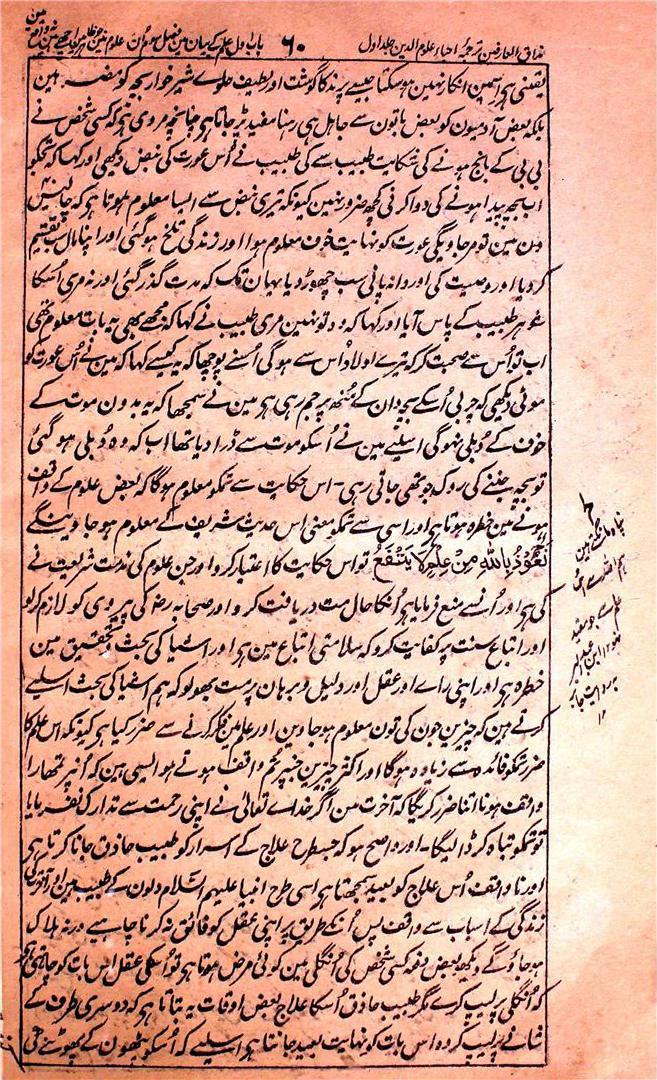 مذاق العارفین ترجمۂ احیاء علوم الدین جلد اول ۶۰ باب اول علم کے بیان مین فصل سوم اُن علوم مین جو
یقینی ہی اسمین انکار نہین ہوسکتا جیسے پرند کا گوشت اور لطیف حلوے شیر خوار بچہ کو مضر ہین
بلکہ بعض آدمیون کو بعض باتون سے جاہل ہی رہنا مفید پڑ جاتا ہی چنانچہ مروی ہی کہ کسی شخص نے
بی بی کے بانجھ ہونے کی شکایت طبیب سے کی طبیب نے اُس عورت کی نبض دیکھی اور کہا کہ تمکو
اب بچہ پیدا ہونے کی دوا کرنی کچھ ضرور نہین کیونکہ تیری نبض سے ایسا معلوم ہوتا ہی کہ چالیس
دن مین تو مرجاویگی عورت کو نہایت خوف معلوم ہوا اور زندگی تلخ ہوگئی اور اپنا مال سب تقسیم
کردیا اور وصیت کی اور دانہ پانی سب چھوڑ دیا یہان تک کہ مدت گذر گئی اور نہ مری اُسکا
شوہر طبیب کے پاس آیا اور کہا کہ وہ تو نہین مری طبیب نے کہا کہ مجھے بھی یہ بات معلوم تھی
اب تو اُس سے صحبت کر کہ تیرے اولاد اُس سے ہوگی اُسنے پوچھا کہ یہ کیسے کہا کہ مین نے اُس عورت کو
موٹی دیکھی کہ چربی اُسکے بچہ دان کے مُنھ پر جم رہی ہی مین نے سمجھا کہ یہ بدون موت کے
خوف کے دُبلی نہوگی اسلیے مین نے اُسکو موت سے ڈرا دیا تھا اب کہ وہ دُبلی ہوگئی
تو بچہ جننے کی روک جو تھی جاتی رہی ۔ اس حکایت سے تمکو معلوم ہوگا کہ بعض علوم کے واقف
ہونے مین خطرہ ہوتا ہی اور اسی سے تمکو معنی اس حدیث شریف کے معلوم ہوجاوینگے
نَعُوْذُ بِاللّٰهِ مِنْ عِلْمٍ لَا يَنْفَعُ تو اس حکایت کا اعتبار کرو اور جن علوم کی مذمت شریعت نے
کی ہی اور اُنسے منع فرمایا ہی اُنکا حال مت دریافت کرو اور صحابہ رضہ کی پیروی کو لازم کرلو
اور اتباع سنت پر کفایت کرو کہ سلامتی اتباع مین ہی اور اشیا کی بحث و تحقیق مین
خطرہ ہی اور اپنی راے اور عقل اور دلیل و برہان پر مت پھولو کہ ہم اشیا کی بحث اسلیے
کرتے ہین کہ چیزین جون کی تون معلوم ہوجاوین اور علم مین فکر کرنے سے ضرر کیا ہی کیونکہ اس علم کا
ضرر تمکو فائدہ سے زیادہ ہوگا اور اکثر چیزین جنپر تم واقف ہوتے ہو ایسی ہین کہ اُنپر تمھارا
واقف ہونا اتنا ضرر کریگا کہ آخرت مین اگر خداے تعالیٰ نے اپنی رحمت سے تدارک نفرمایا
تو تمکو تباہ کر ڈالیگا ۔ اور واضح ہو کہ جسطرح علاج کے اسرار کو طبیب حاذق جانا کرتا ہی
اور ناواقف اُس علاج کو بعید سمجھتا ہی اسی طرح انبیا علیہم السلام دلون کے طبیب ہین اور آخرت کی
زندگی کے اسباب سے واقف پس اُنکے طریق پر اپنی عقل کو فائق نہ کرنا چاہیے ورنہ ہلاک
ہوجاؤگے دیکھو بعض دفعہ کسی شخص کی اُنگلی مین کوئی مرض ہوتا ہی تو اُسکی عقل اس بات کو چاہتی ہی
کہ اُنگلی پر لیپ کرے مگر طبیب حاذق اُسکا علاج بعض اوقات یہ بتاتا ہی کہ دوسری طرف کے
شانے پر لیپ کر وہ اس بات کو نہایت بعید جانتا ہی اسلیے کہ اُسکو پٹھون کے پھوٹنے کی
پناہ مانگتے ہین
ہم اللہ سے اُس
علم سے جو مفید
نہو ابن عبد البر
بروایت جابر
۱۲